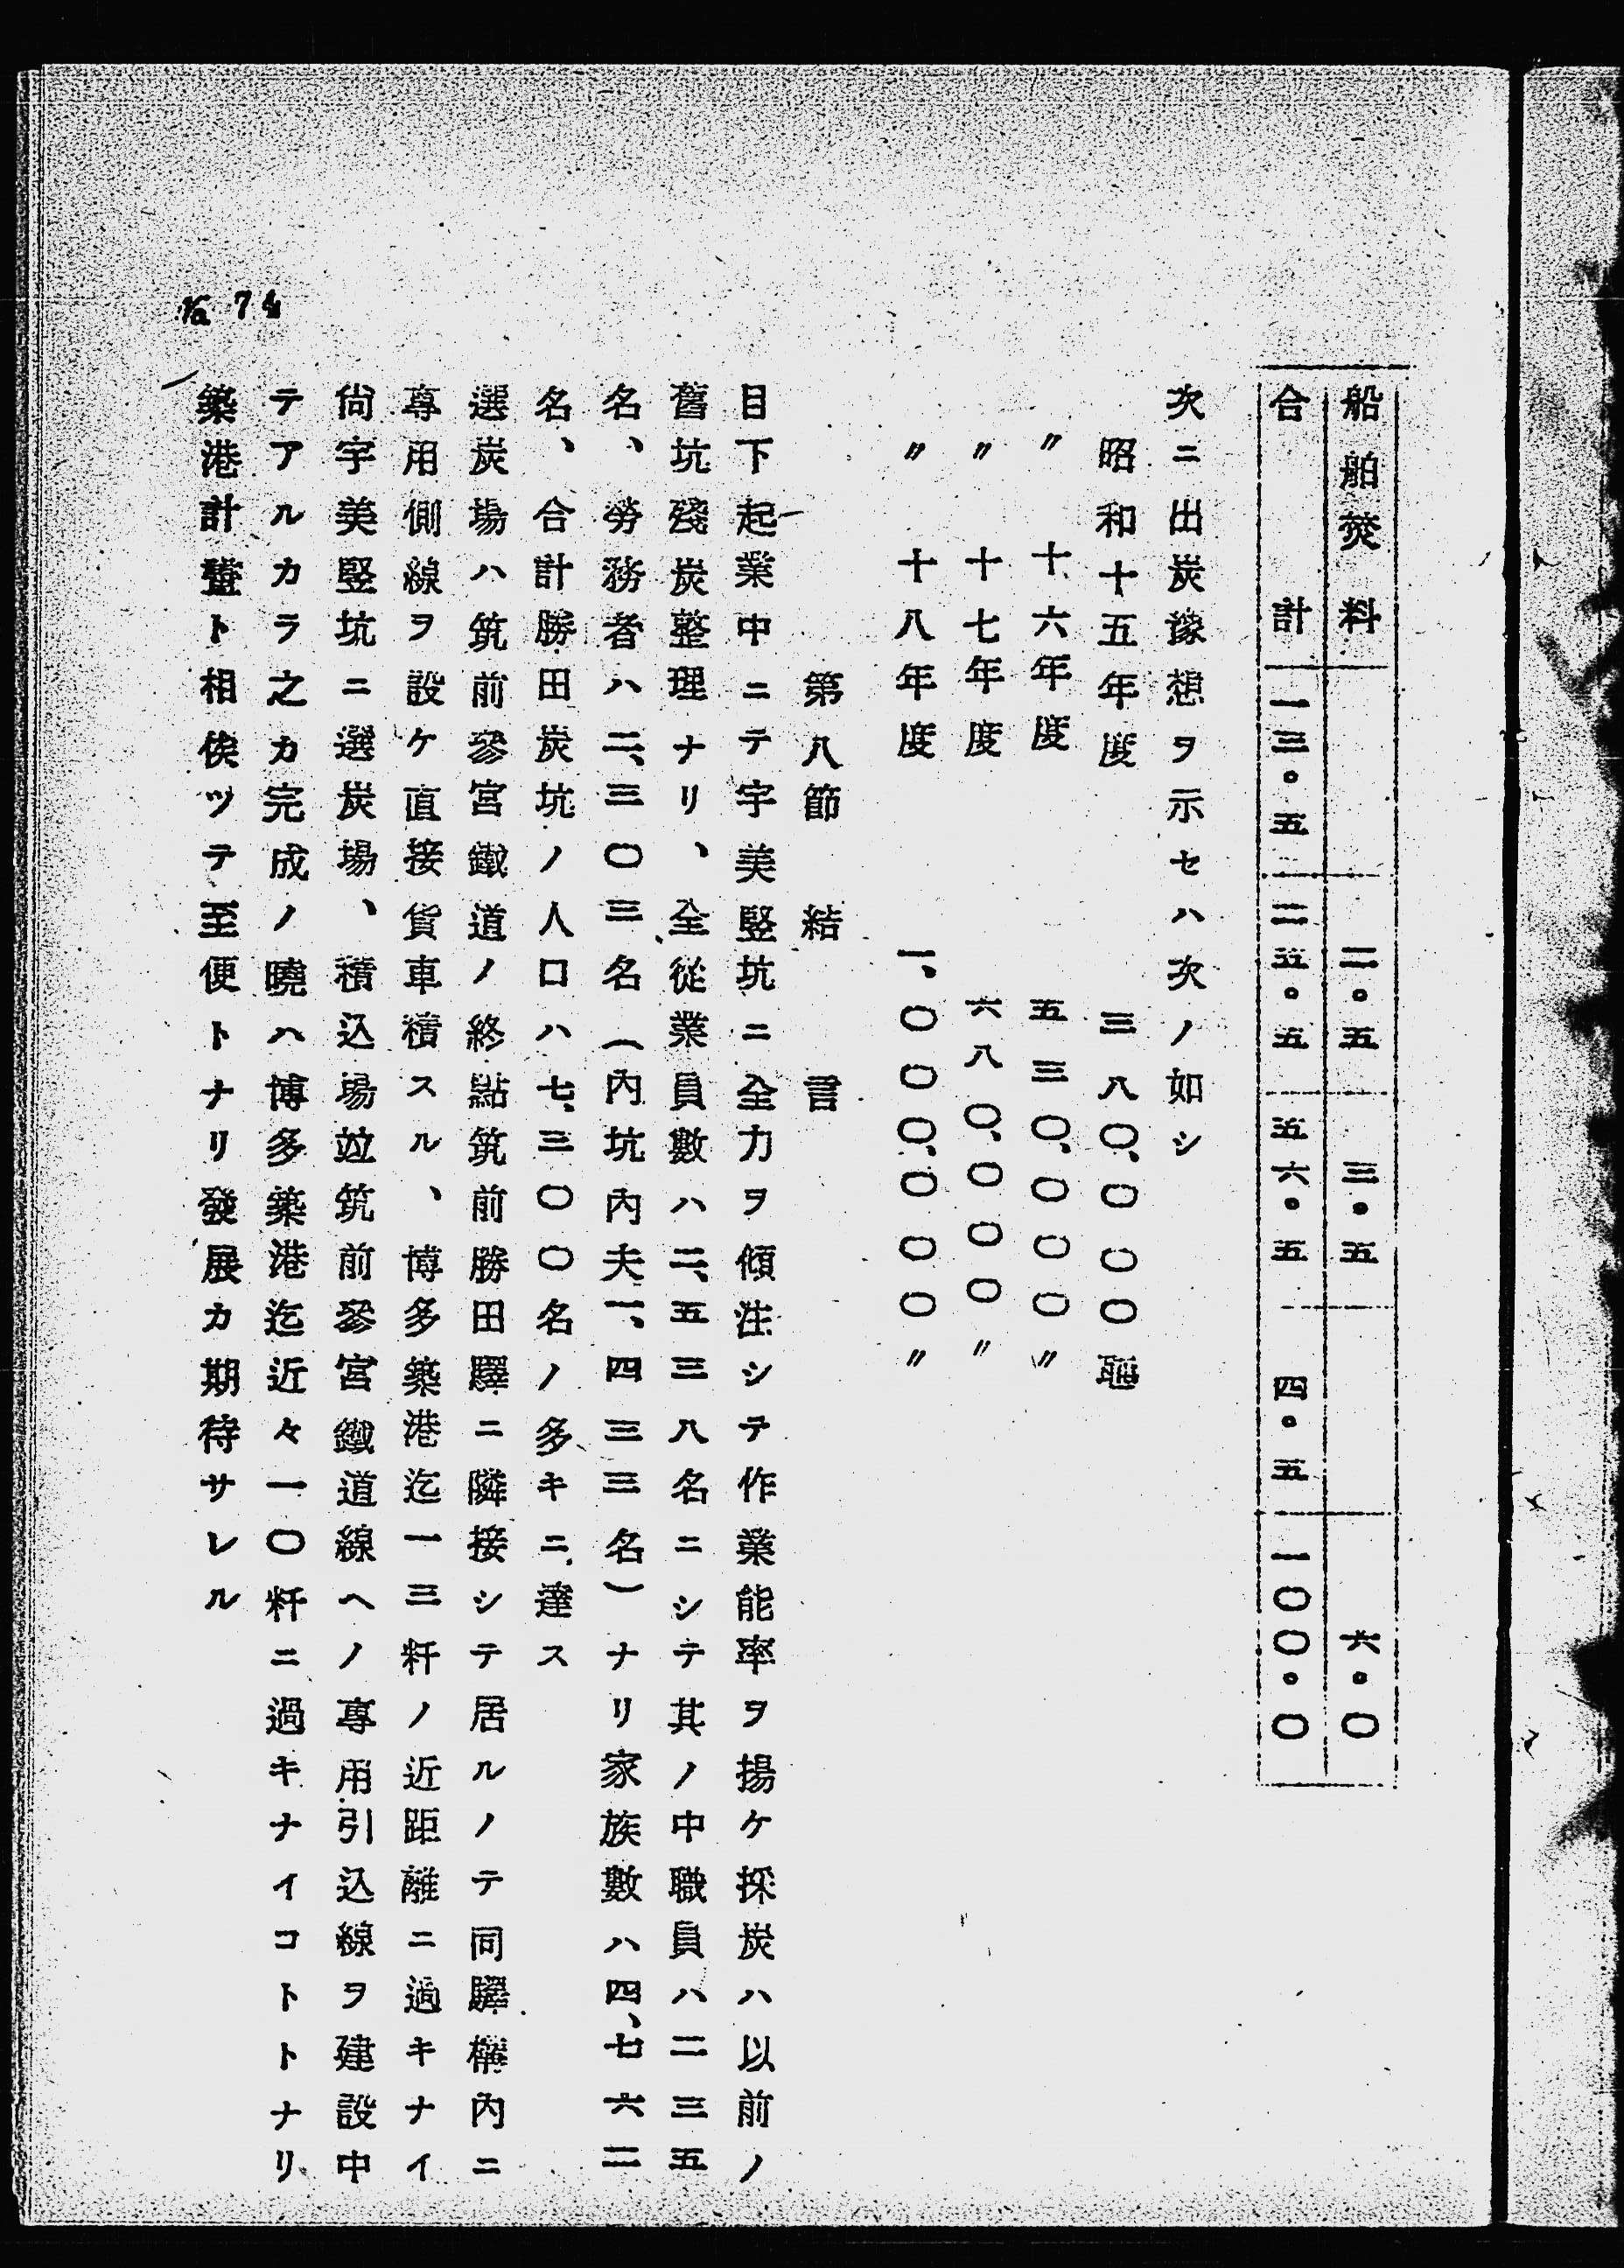 船舶焚料 二.五 三.五 六.〇
合計 一三.五 二五.五 五六.五 四.五 一〇〇.〇
次ニ出炭豫想ヲ示セハ次ノ如シ
昭和十五年度 三八〇、〇〇〇瓲
〃 十六年度 五三〇、〇〇〇〃
〃 十七年度 六八〇、〇〇〇〃
〃 十八年度 一、〇〇〇、〇〇〇〃
第八節 結言
目下起業中ニテ宇美竪坑ニ全力ヲ傾注シテ作業能率ヲ揚ケ採炭ハ以前ノ
舊坑殘炭整理ナリ、全從業員數ハ二、五三八名ニシテ其ノ中職員ハ二三五
名、勞務者ハ二、三〇三名(內坑內夫一、四三三名)ナリ家族數ハ四、七六二
名、合計勝田炭坑ノ人口ハ七、三〇〇名ノ多キニ達ス
選炭場ハ筑前參宮鐵道ノ終點筑前勝田驛ニ隣接シテ居ルノテ同驛構內ニ
專用側線ヲ設ケ直接貨車積スル、博多築港迄一三粁ノ近距離ニ過キナイ
尙宇美竪坑ニ選炭場、積込場竝筑前參宮鐵道線ヘノ專用引込線ヲ建設中
テアルカラ之カ完成ノ曉ハ博多築港迄近々一〇粁ニ過キナイコトトナリ
築港計畫ト相俟ツテ至便トナリ發展カ期待サレル
74